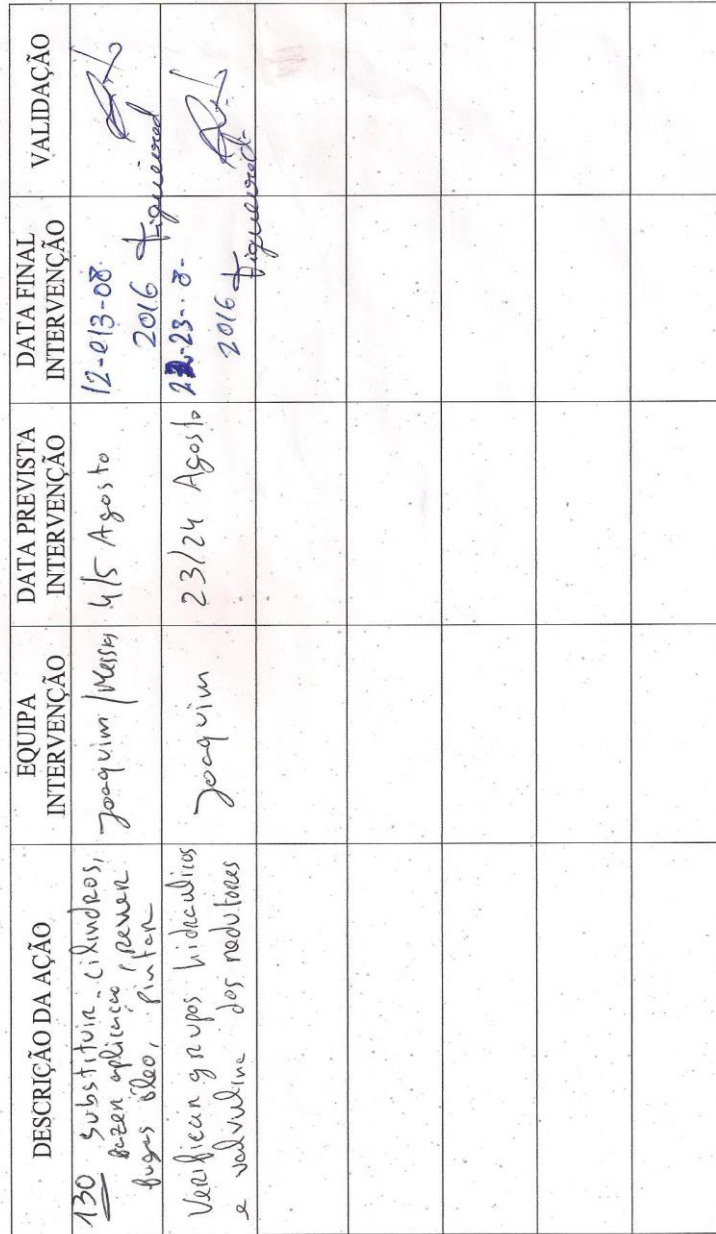 DESCRIÇÃO DA AÇÃO
EQUIPA
INTERVENÇÃO
DATA PREVISTA
INTERVENÇÃO
DATA FINAL
INTERVENÇÃO
VALIDAÇÃO
130 substituir cilindros,
fazer aplicação, rever
fugas óleo, pintar
Joaquim /
4/5 Agosto
12-e13-08-
2016
Figueired
Verificar grupos hidraulicos
e valvulina dos redutores
Joaquim
23/24 Agosto
22-23-8-
2016
Figueired